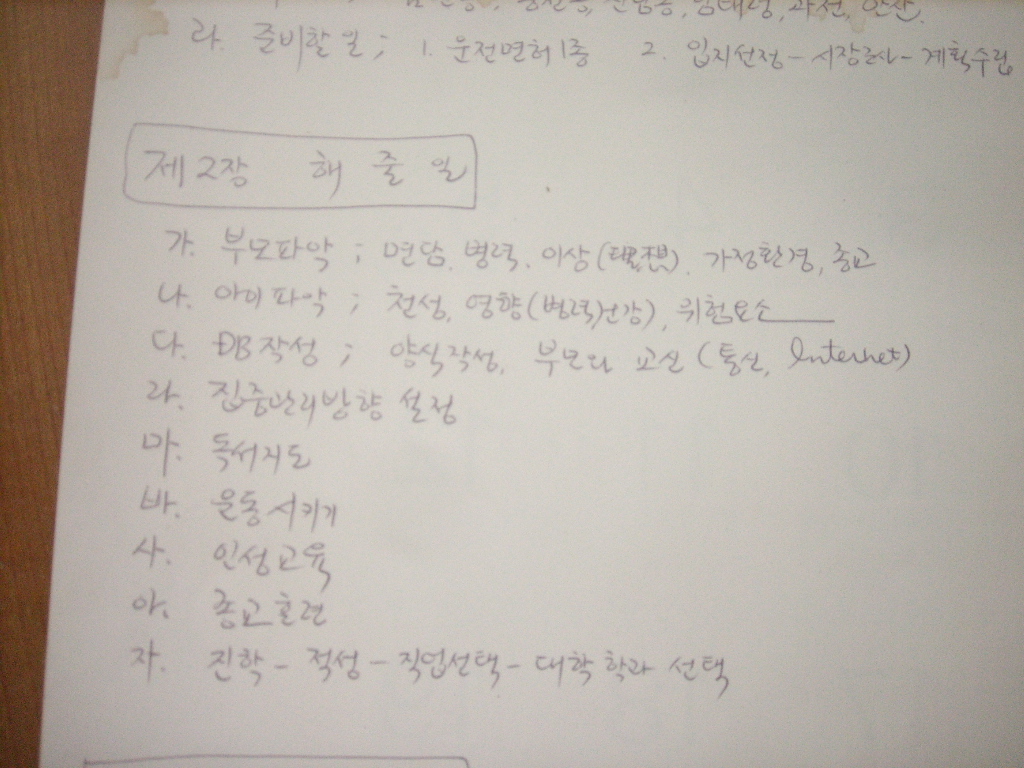 과천, 안산.
라. 준비할 일 ; 1. 운전면허 1종 2. 입지선정 - 시장조사 - 계획수립
제2장 해 줄 일
가. 부모파악 ; 면담, 병력, 이상(理想), 가정환경, 종교
나. 아이파악 ; 천성, 영향(병력)건강), 위험요소
다. DB작성 ; 양식작성, 부모와 교신 (통신, Internet)
라. 집중관리방향 설정
마. 독서지도
바. 운동시키기
사. 인성교육
아. 종교훈련
자. 진학 - 적성 - 직업선택 - 대학 학과 선택